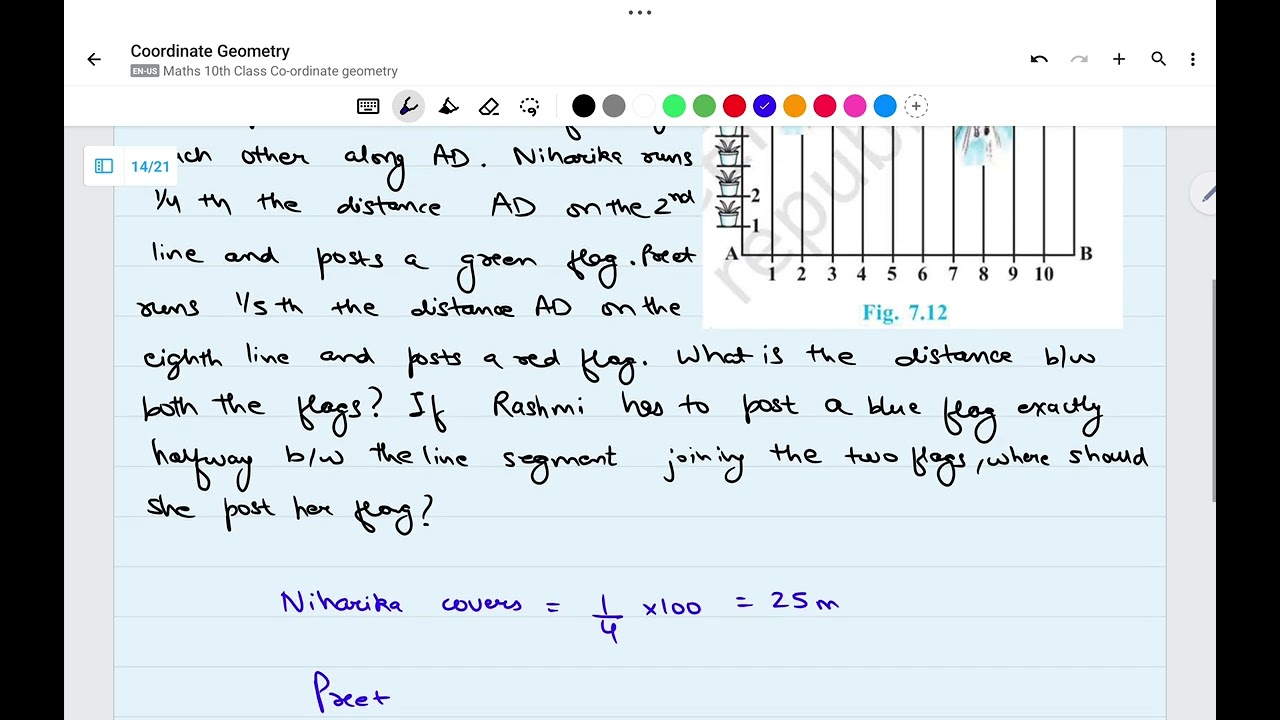 Coordinate Geometry
EN-US Maths 10th Class Co-ordinate geometry
14/21
other along AD. Niharika runs
1/4 th the distance AD on the 2nd
line and posts a green flag. Preet
runs 1/5 th the distance AD on the
eighth line and posts a red flag. What is the distance b/w
both the flags? If Rashmi has to post a blue flag exactly
halfway b/w the line segment joining the two flags, where should
she post her flag?
2
1
A
B
1 2 3 4 5 6 7 8 9 10
Fig. 7.12
republ
Niharika covers = 1/4 ×100 = 25 m
Preet